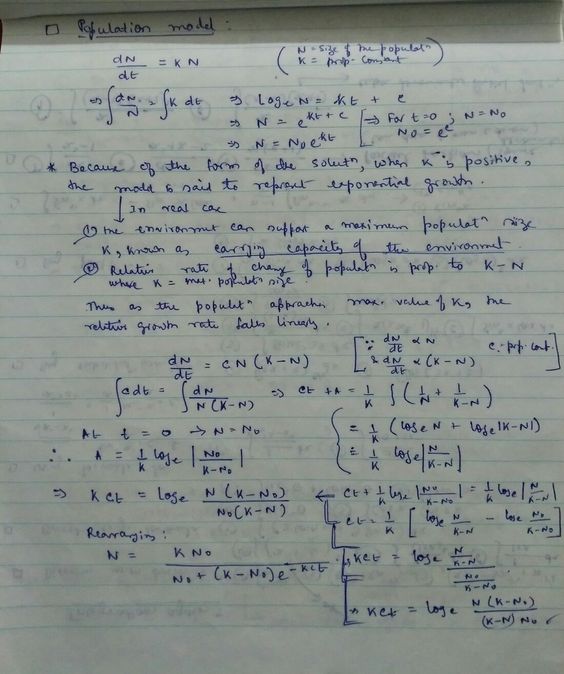 □ Population model :
dN/dt = KN ( N = Size of the populatⁿ
K = prop. constant )
⇒ ∫dN/N = ∫K dt ⇒ logₑ N = Kt + c
⇒ N = e^(Kt + c) [ → For t=0 ; N = N₀
⇒ N = N₀e^(Kt) N₀ = e^c ]
* Because of the form of the solutⁿ, when K is positive,
the model is said to reprsent exponential growth.
↓ In real case
① The environment can support a maximum populatⁿ size
K, known as carrying capacity of the environment.
② Relative rate of change of populatⁿ is prop. to K-N
where K = max. populatⁿ size.
Thus as the populatⁿ approaches max. value of K, the
relative growth rate falls linearly.
dN/dt = CN(K-N) [ ∵ dN/dt ∝ N
& dN/dt ∝ (K-N) c. prop. cont. ]
∫c dt = ∫ dN/N(K-N) ⇒ ct + A = 1/K ∫ (1/N + 1/K-N)
At t = 0 → N = N₀ = 1/K (logₑ N + logₑ|K-N|)
∴ A = 1/K logₑ |N₀/K-N₀| = 1/K logₑ |N/K-N|
⇒ Kct = logₑ N(K-N₀)/N₀(K-N) ← ct + 1/K logₑ |N₀/K-N₀| = 1/K logₑ |N/K-N|
ct = 1/K [ logₑ N/K-N - logₑ N₀/K-N₀ ]
Rearranging :
N = KN₀ / N₀ + (K-N₀)e^(-Kct)
⇒ Kct = logₑ (N/K-N) / (N₀/K-N₀)
⇒ Kct = logₑ N(K-N₀)/(K-N)N₀